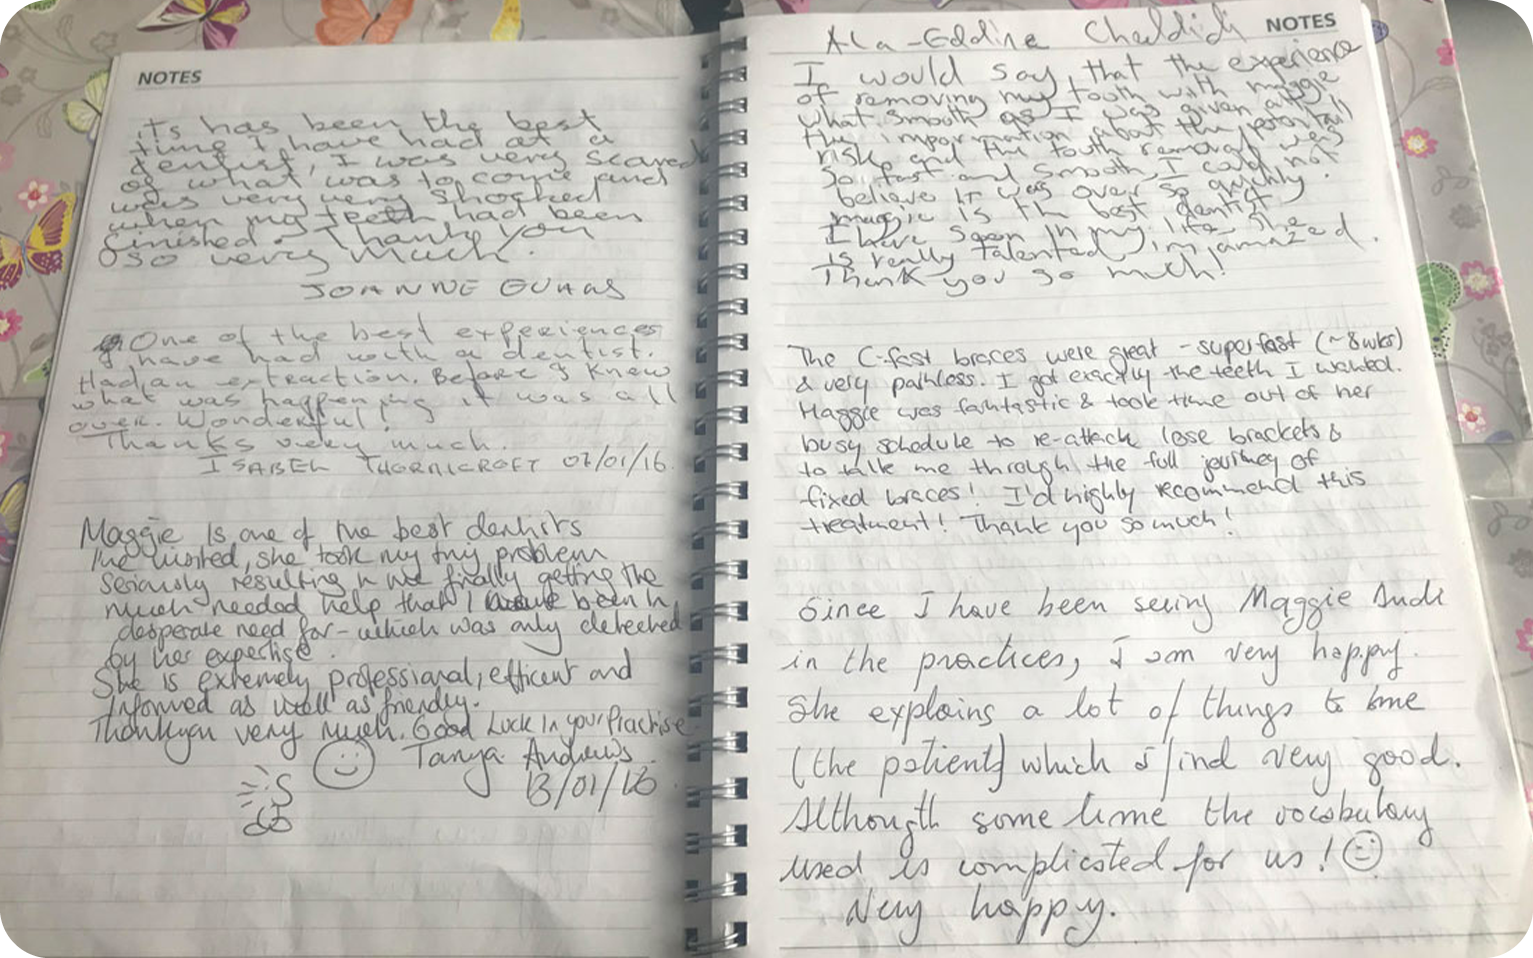 NOTES
its has been the best
time I have had at a
dentist, I was very scared
of what was to come and
was very very shocked
when my teeth had been
finished. Thank you
so very much.
JOANNE
One of the best experiences
I have had with a dentist.
Had an extraction. Before I knew
what was happening it was all
over. Wonderful!
Thanks very much.
ISABEL THORNICROFT 07/01/16.
Maggie Is one of the best dentists
I've visited, she took my tiny problem
seriously resulting in me finally getting the
much needed help that I have been in
desperate need for - which was only detected
by her expertise.
She is extremely professional, efficent and
Informed as well as friendly.
Thankyou very much. Good Luck In your Practise
Tanya Andrews
13/01/16
NOTES
Ala-Eddine Cheddidi
I would say, that the experience
of removing my tooth with maggie
what smooth as I was given all
the information about the potential
risk and the tooth removal was
so fast and smooth, I could not
believe it was over so quickly.
maggie is th best dentist
I have seen in my life. She
is really talented, im amazed.
Thank you so much!
The C-fast braces were great - super fast (~8wks)
& very painless. I got exactly the teeth I wanted.
Maggie was fantastic & took time out of her
busy schedule to re-attach lose brackets &
to talk me through the full journey of
fixed braces! I'd highly recommend this
treatment! Thank you so much!
Since I have been seeing Maggie
in the practices, I am very happy.
She explains a lot of things to me
(the patient) which I find very good.
Although some time the vocabulary
used is complicated for us!
Very happy.